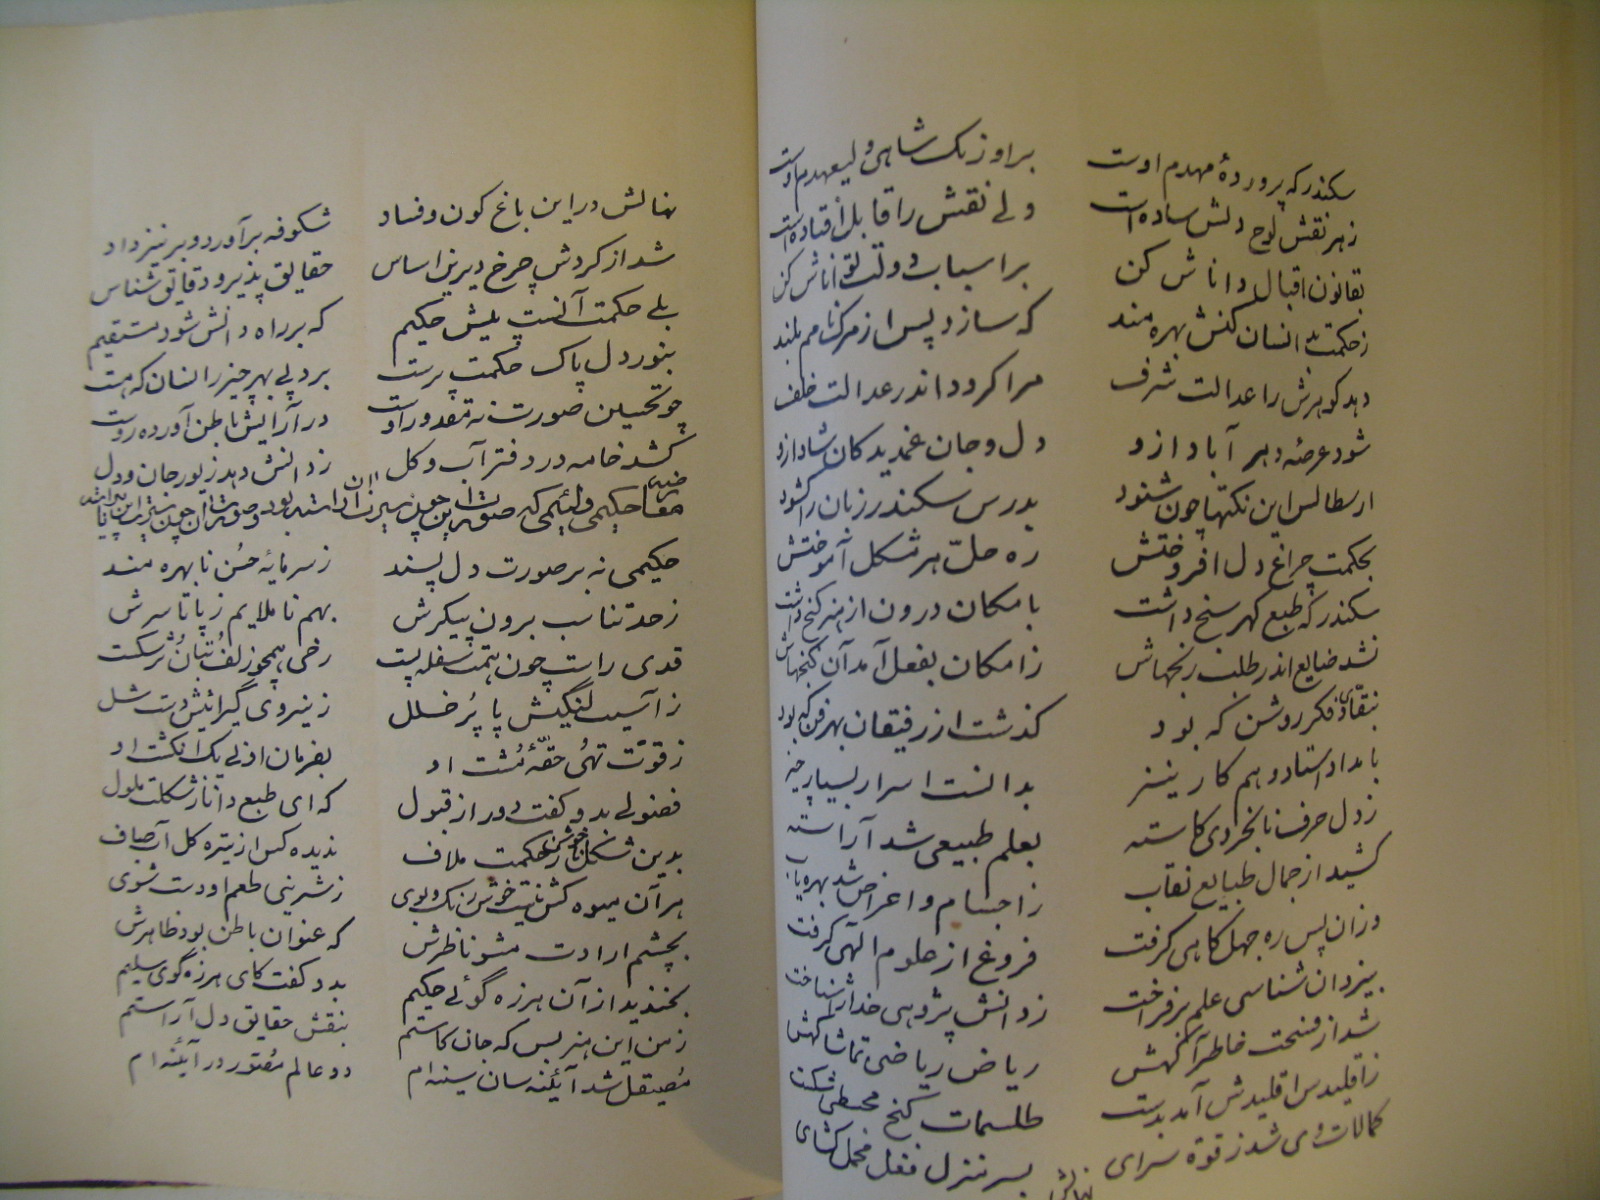 سکندر که پروردهٔ مهدم اوست
بر اورنگ شاهی ولیعهدم اوست
ز هر نقش لوح دلش ساده است
ولی نقش را قابل افتاده است
بقانون اقبال داناش کن
بر اسباب دولت تواناش کن
ز حکمت بدانسان کنش بهره مند
که سازد پس از مرگ نامم بلند
دهد گوهرش را عدالت شرف
مرا گردد اندر عدالت خلف
شود عرصهٔ دهر آباد ازو
دل و جان غمدیدگان شاد ازو
ارسطالس این نکتها چون شنود
بدرس سکندر زبان را گشود
بحکمت چراغ دل افروختش
ره حلّ هر مشکل آموختش
سکندر که طبع گهرسنج داشت
بامکان درون از هنر گنج داشت
نشد ضایع اندر طلب رنجهاش
ز امکان بفعل آمد آن گنجهاش
بنقّادی فکر روشن که بود
گذشت از رفیقان بهر فن که بود
بامداد استاد و هم کار نیز
بدانست اسرار بسیار چیز
ز دل حرف نابخردی کاسته
بعلم طبیعی شد آراسته
کشید از جمال طبایع نقاب
ز اجسام و اعراض شد بهره یاب
وزان پس ره جهل کاهی گرفت
فروغ از علوم الهی گرفت
بیزدان شناسی علم برفراخت
ز دانش پژوهی خدا را شناخت
شد از فسحت خاطر آگهش
ریاض ریاضی تماشاگهش
ز اقلیدس اقلیدش آمد بدست
طلسمات گنج مجسطی شکست
کمالات وی شد ز قوة سرای
بسر منزل فعل محمل گشای
نهالش
نهالش درین باغ کون و فساد
شکوفه برآورد و بر نیز داد
شد از گردش چرخ دیرین اساس
حقایق پذیر و دقایق شناس
بلی حکمت آنست پیش حکیم
که بر راه دانش شود مستقیم
بنور دل پاک حکمت پرست
برد پی بهر چیز زانسان که هست
چو تحسین صورت نه مقدور اوست
در آرایش باطن آورده روست
کشد خامه در دفتر آب و گل
ز دانش دهد زیور جان و دل
حکیمی نه بر صورت دل پسند
ز سرمایهٔ حسن نابهره مند
ز حد تناسب برون پیکرش
بهم ناملایم ز پا تا سرش
قدی راست چون همت سفله پست
رخی همچو زلف بتان پُر شکست
ز آسیب لنگیش پا پُر خلل
ز نیروی گیرائیش دست شل
ز قوّت تهی حقّهٔ مُشت او
بفرمان او نی یک انگشت او
فضولی بدو گفت دور از قبول
که ای طبع دانا ز شکلت ملول
بدین شکل ناخوش ز حکمت ملاف
ندیده کس از تیره گل آب صاف
هر آن میوه کش نیست خوش رنگ و بوی
ز شیرینی طعم او دست شوی
بچشم ارادت مشو ناظرش
که عنوان باطن بود ظاهرش
بخندید از آن هرزه گوئی حکیم
بدو گفت کای هرزه گوی سلیم
ز من این هنر بس که جان کاستم
بنقش حقایق دل آراستم
مُصیقل شد آئینه سان سینه ام
دو عالم مُصوّر در آئینه ام